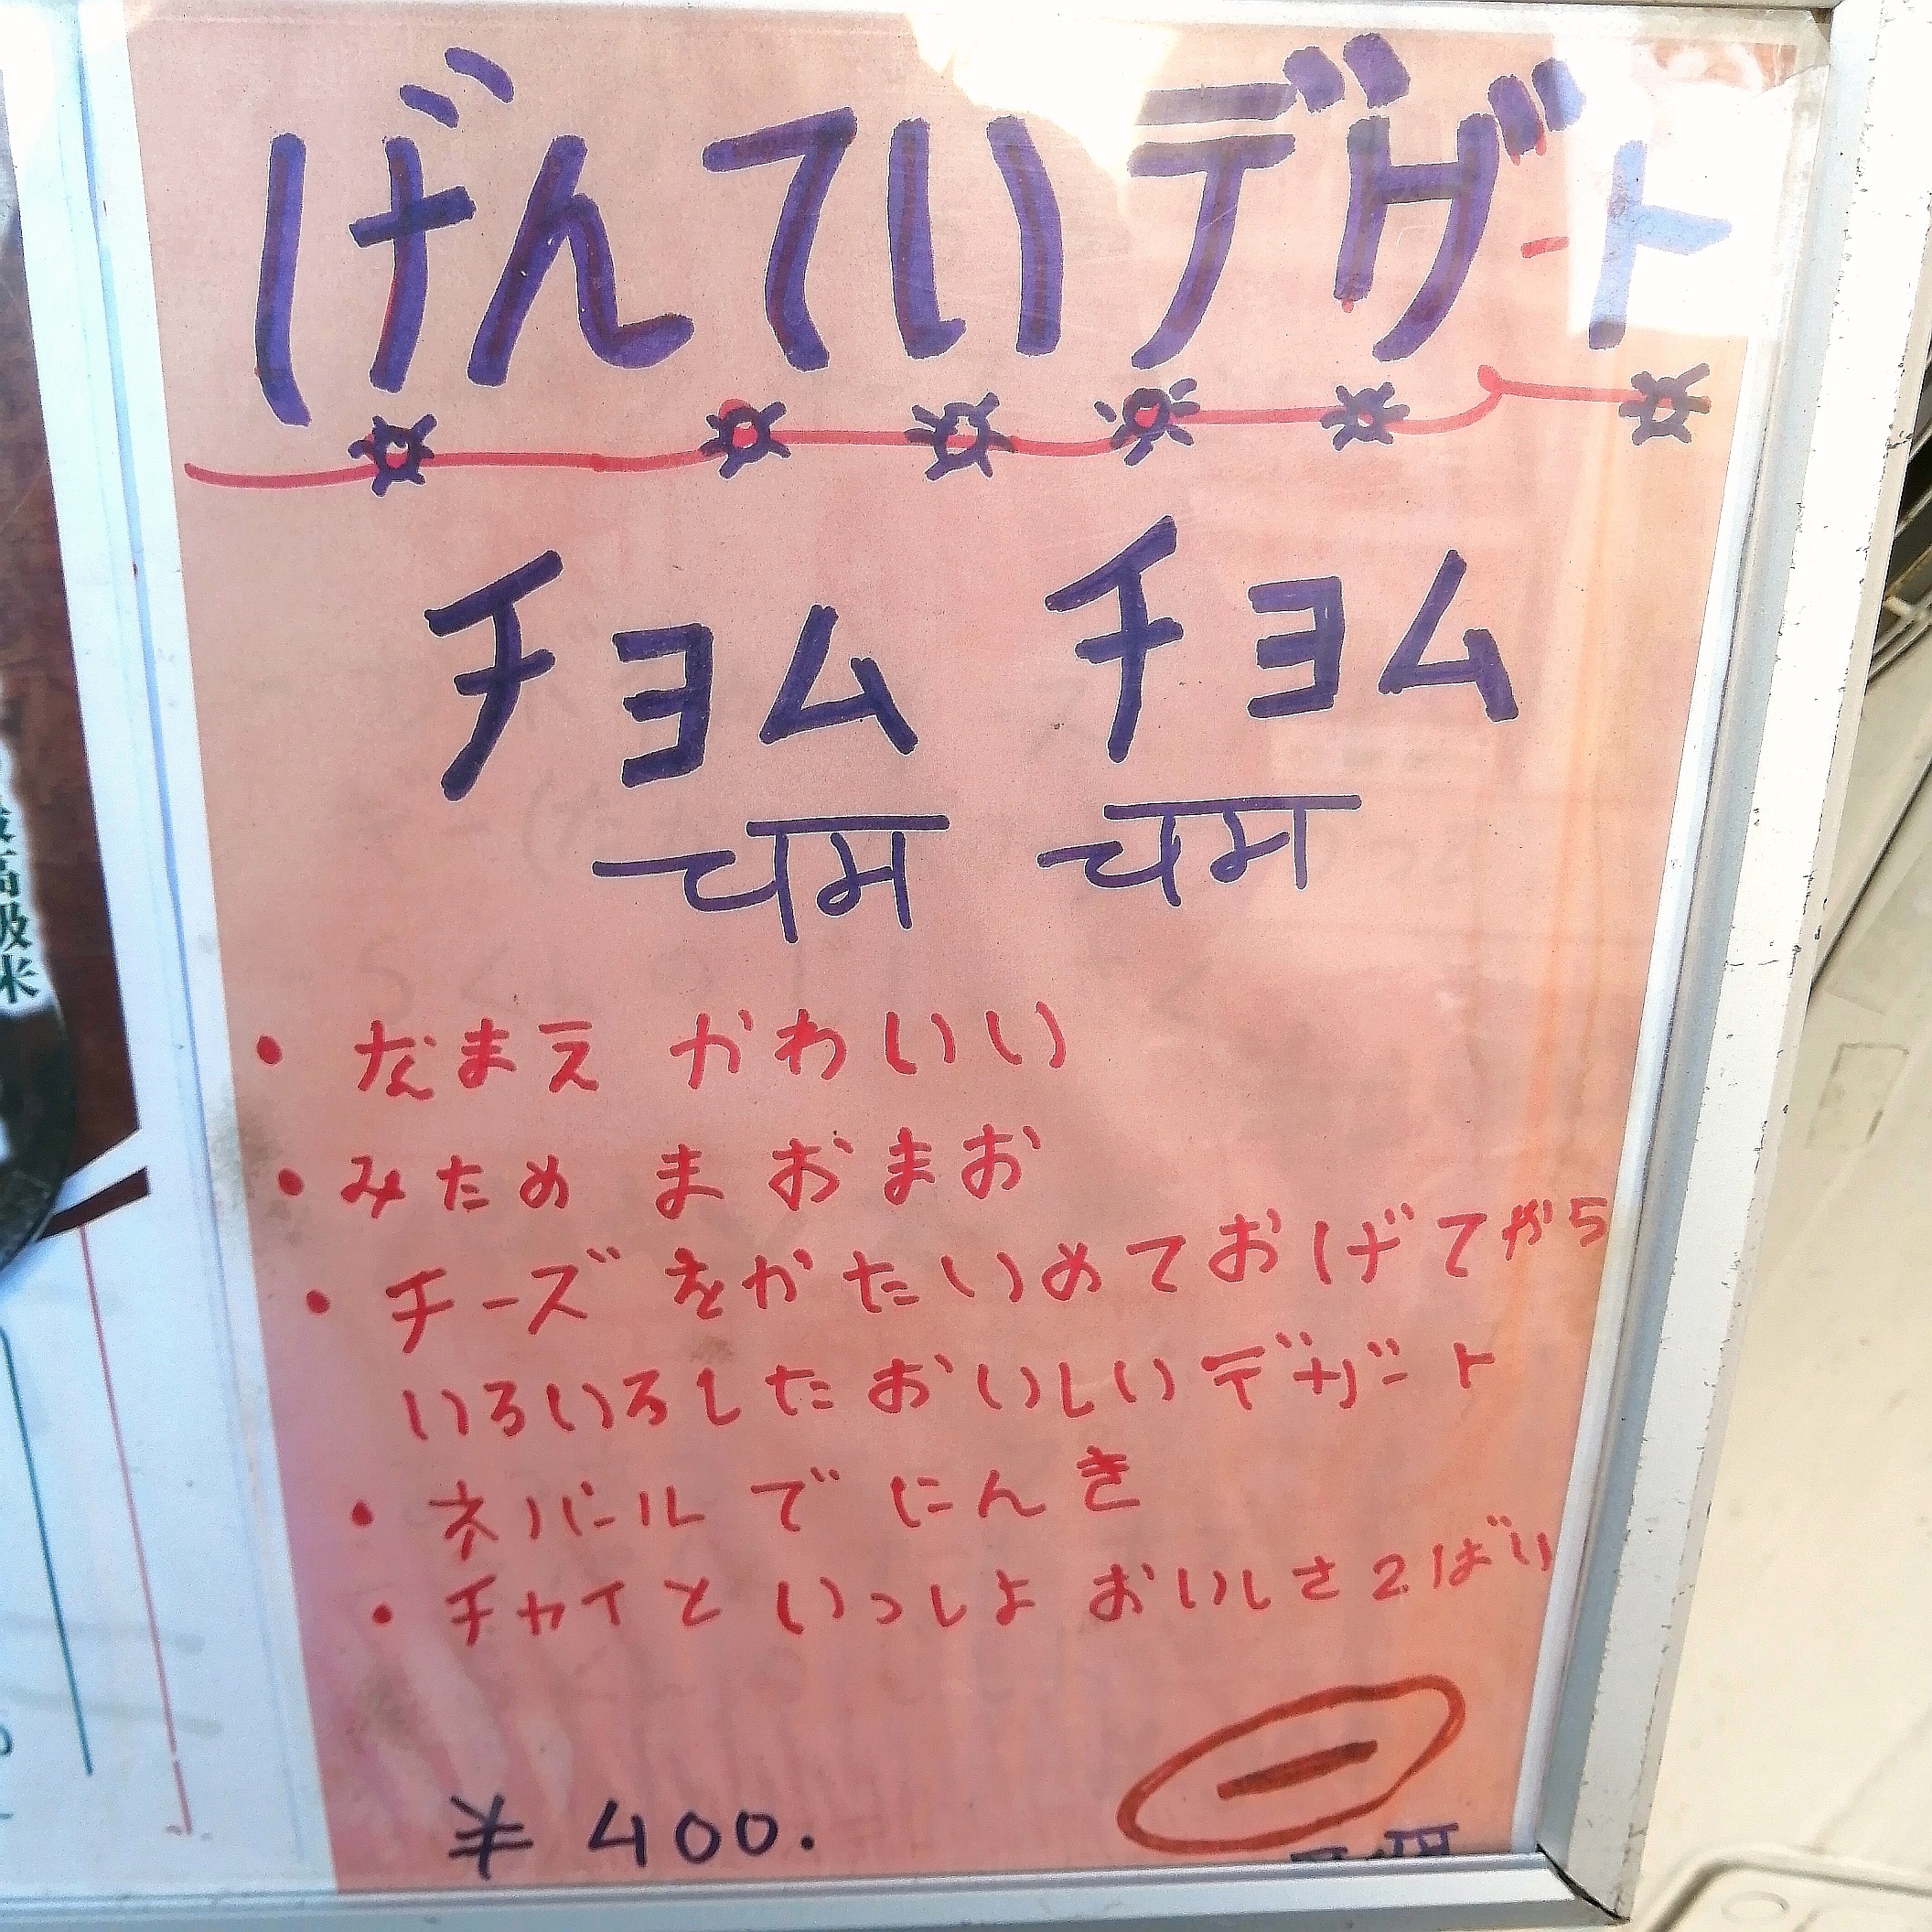 げんていデザート
チョム チョム
चम चम
・なまえ かわいい
・みため まおまお
・チーズをかたいめておげてから
いろいろしたおいしいデザート
・ネパールでにんき
・チャイと いっしょ おいしさ2ばい
¥400.
高級米